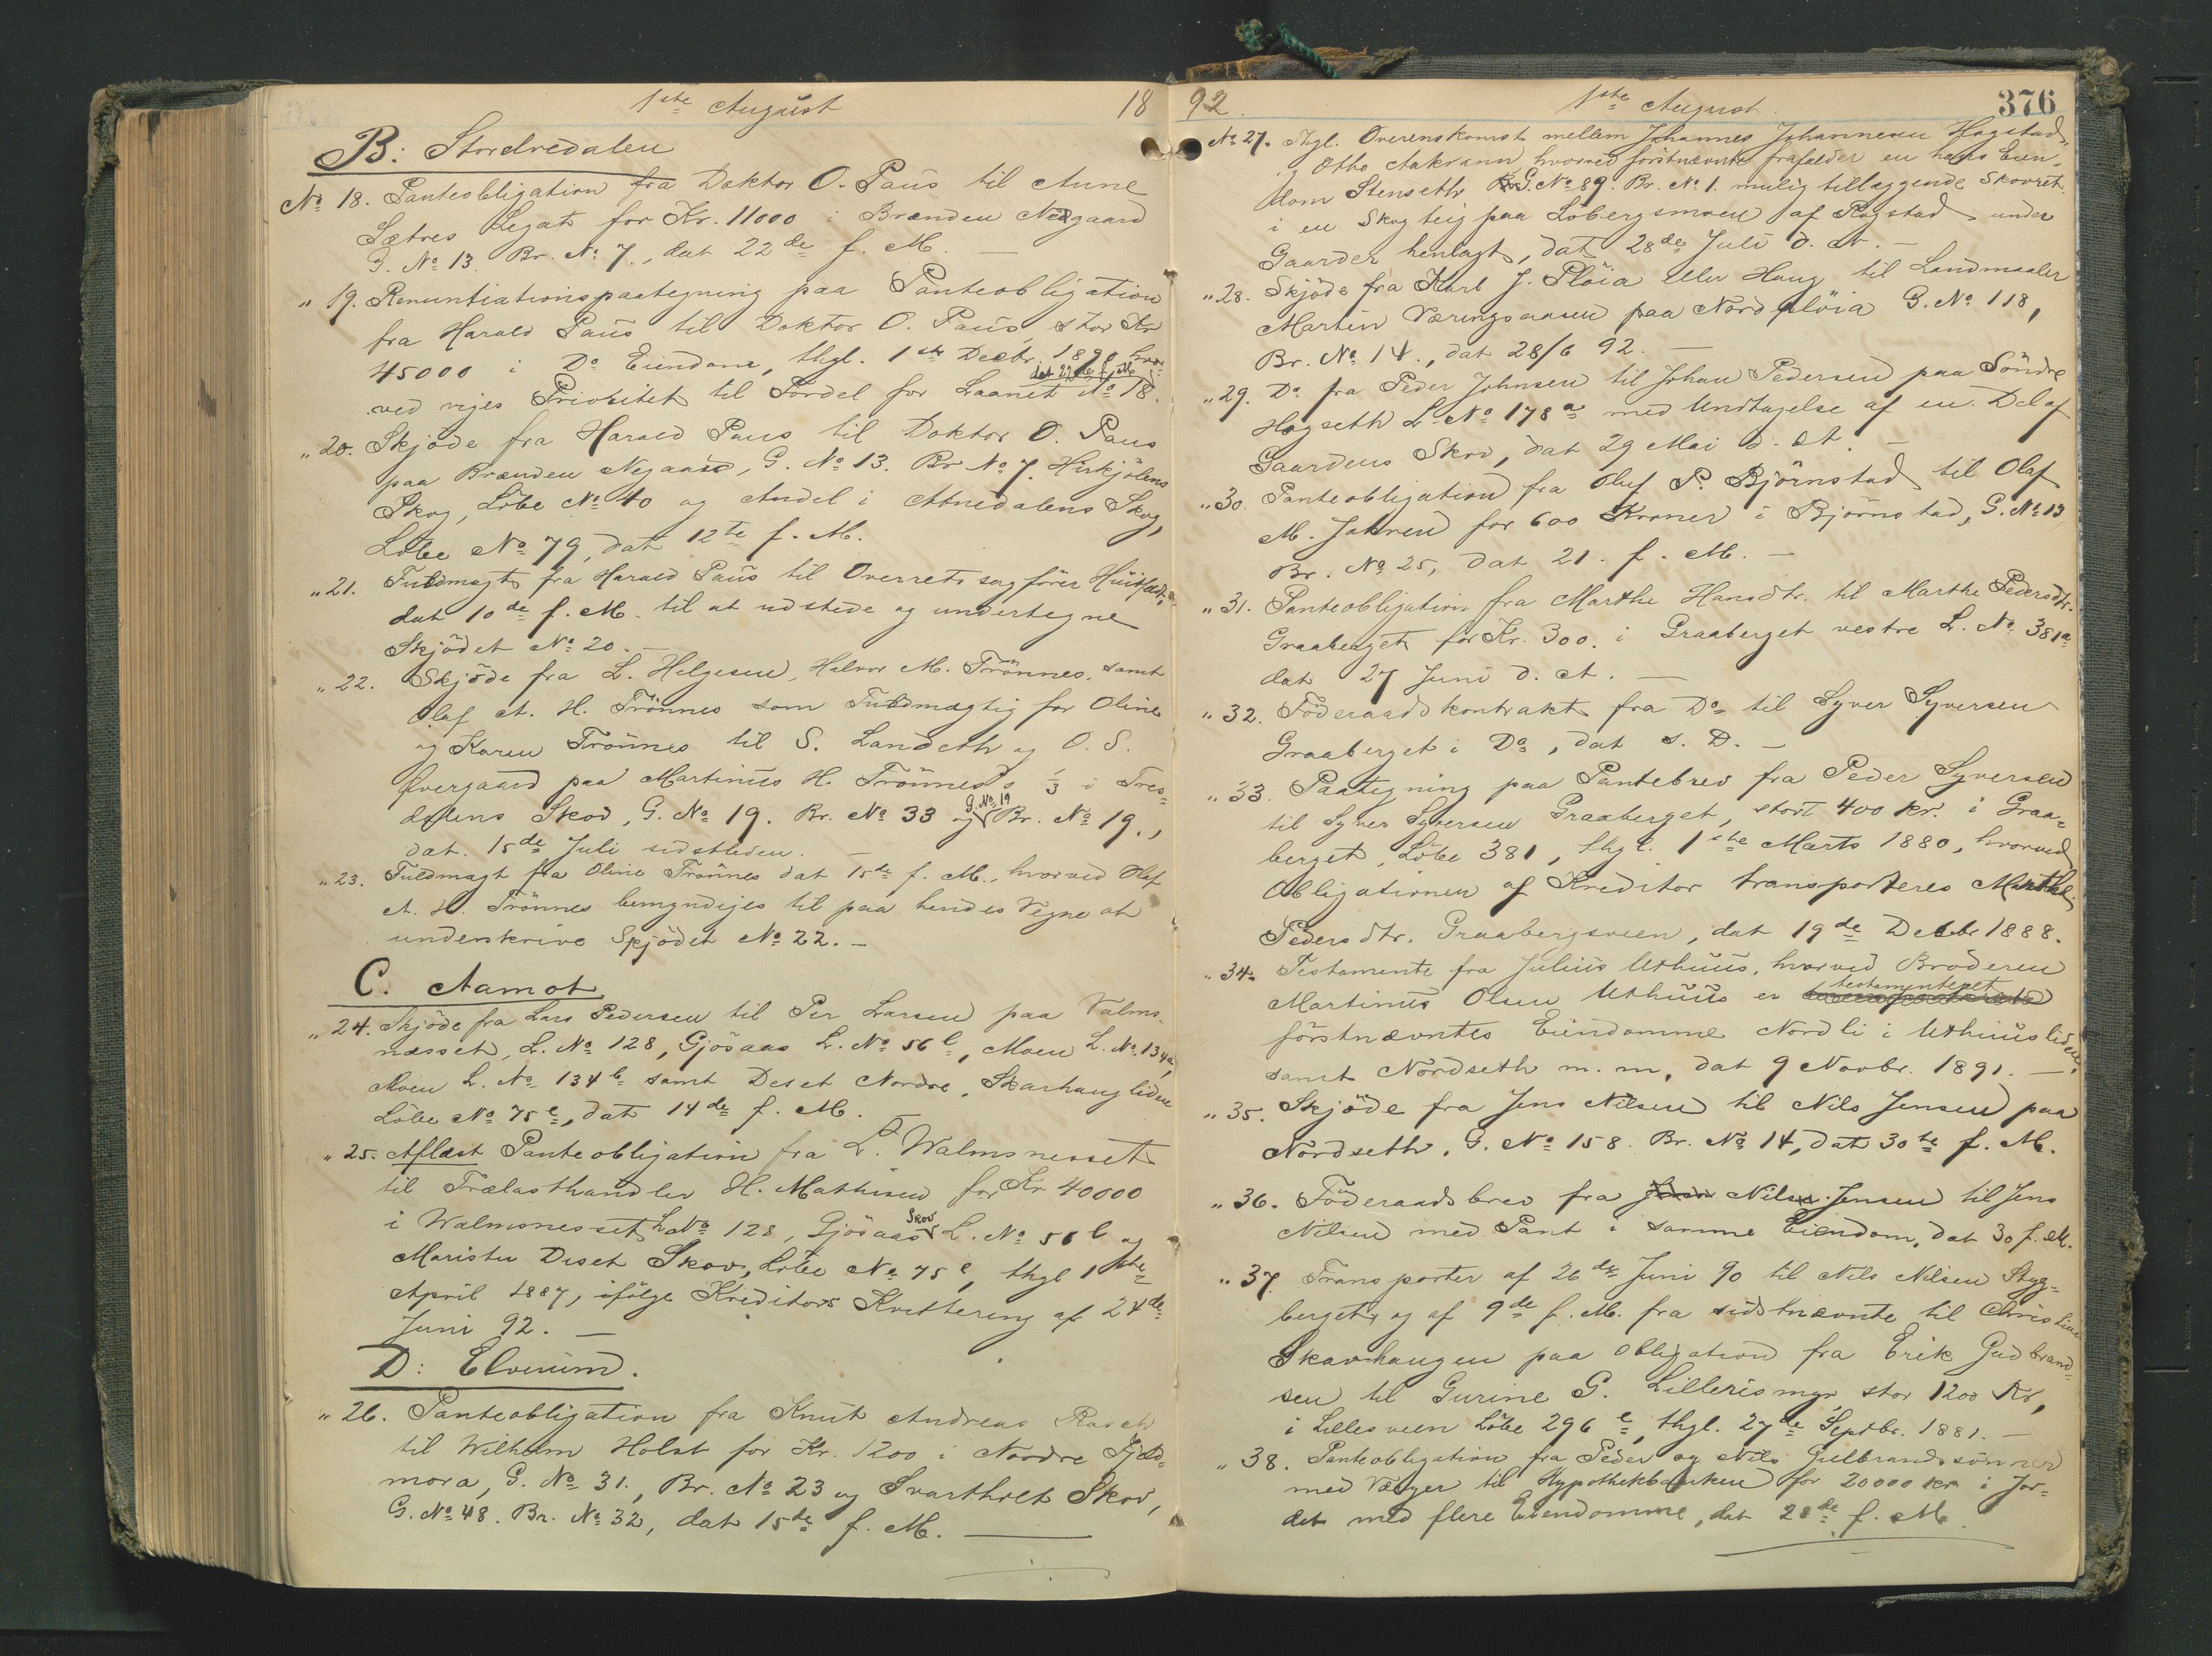 1ste August 18
B: Storelvedalen
No 18. Panteobligation fra Doktor O. Paus til Anne
Sætres Legat for Kr. 11000 i Brænden Nedgaard
G. No 13. Br. No 7., dat 22de f. M. —
" 19. Renuntiationspaategning paa Panteobligation
fra Harald Paus til Doktor O. Paus, stor Kr
45000 i Do Eiendom, thgl. 1ste Decbr. 1890 hvor-
dat 22de f. M.
ved viges Prioritet til Fordel for Laanet No 18.
" 20. Skjöde fra Harald Paus til Doktor O. Paus
paa Brænden Negaard, G. No 13. Br No 7. Hirkjölens
Skog, Löbe No 40 og Andel i Atnedalens Skog,
Löbe No 79, dat 12te f. M.
" 21. Fuldmagt fra Harald Paus til Overretssagförer Huitfeldt,
dat 10de f. M. til at udstede og undertegne
Skjödet No 20. —
" 22. Skjöde fra L. Helgesen, Halvor M. Trönnes, samt
Olaf A. H. Trönnes som Fuldmægtig for Oline
og Karen Trönnes til S. Landeth og O. S.
Övergaard paa Martinus H. Trönnes's 1/3 i Tres-
G. No 19
dalens Skov, G. No 19. Br. No 33 og Br. No 19.,
dat. 15de Juli sidstleden. —
" 23. Fuldmagt fra Oline Trönnes dat 15de f. M., hvorved Olaf
A. H. Trönnes bemyndiges til paa hendes Vegne at
underskrive Skjödet No 22. —
C. Aamot
" 24. Skjöde fra Lars Pedersen til Per Larsen paa Valms-
nesset, L. No 128, Gjösaas L. No 56b, Moen L. No 134a,
Moen L. No 134b samt Deset Nordre, Skarhauglien
Löbe No 75e, dat 14de f. M. —
" 25. Aflæst Panteobligation fra L. Walmsnesset
til Trælasthandler H. Mathisen for Kr 40000
Skov
i Walmsnesset L No 128, Gjösaas L. No 56b og
Maristu Deset Skov, Löbe No 75e, thgl 1ste
April 1887, ifölge Kreditors Kvittering af 24de
Juni 92. —
D: Elverum.
" 26. Panteobligation fra Knut Andreas Rasch
til Wilhelm Holst for Kr. 1200 i Nordre Fjeld-
mora, G. No 31., Br. No 23 og Svartholt Skov,
G. No 48. Br. No 32, dat 15de f. M. —
92. 1ste August. 376
No 27. Thgl. Overenskomst mellem Johannes Johannesen Hagstad
og Otto Aakrann hvorved förstnævnte frafalder en hans Eien-
dom Stenseth G. No 89. Br. No 1. mulig tillæggende Skovret
i en Skogteig paa Löbergsmoen af Rogstad under
Gaarder henlagt, dat 28de Juli d. A. —
" 28. Skjöde fra Karl J. Plöia eller Haug til Landmaaler
Martin Væringsaasen paa Nordplöia G. No 118,
Br. No 14., dat 28/6 92. —
" 29. Do fra Peder Johnsen til Johan Pedersen paa Söndre
Hogseth L. No 178a med Undtagelse af en Del af
Gaardens Skov, dat 29 Mai d. A. —
" 30. Panteobligation fra Oluf P. Björnstad til Olaf
M. Jahren for 600 Kroner i Björnstad, G. No 13
Br. No 25, dat 21. f. M. —
" 31. Panteobligation fra Marthe Hansdtr. til Marthe Pedersdtr.
Graaberget for Kr. 300. i Graaberget vestre L. No 381a
dat 27 Juni d. A. —
" 32. Föderaadskontrakt fra Do til Syver Syversen
Graaberget i Do, dat s. D. —
" 33. Paategning paa Pantebrev fra Peder Syversen
til Syver Syversen Graaberget, stort 400 Kr. i Graa-
berget, Löbe 381, thgl. 1ste Marts 1880, hvorved
Obligationen af Kreditor transporteres Marthe
Pedersdtr. Graabergsveen, dat 19de Decbr 1888.
" 34. Testamente fra Julius Uthuus, hvorved Broderen
testamenteret
Martinus Olsen Uthuus er
förstnævntes Eiendomme Nordli i Uthuuslien,
samt Nordseth m. m, dat 9 Novbr. 1891. —
" 35. Skjöde fra Jens Nilsen til Nils Jensen paa
Nordseth, G. No 158. Br. No 14, dat 30te f. M.
" 36. Föderaadsbrev fra Nils Jensen til Jens
Nilsen med Pant i samme Eiendom, dat 30 f. M.
" 37. Transporter af 26de Juni 90 til Nils Nilsen Styg-
berget og af 9de f. M. fra sidstnævnte til Christine
Skavhaugen paa Obligation fra Erik Gudbrand-
sen til Gurine G. Lillerismyr, stor 1200 Kr,
i Lillesveen Löbe 296e, thgl. 27de Septbr. 1881. —
" 38. Panteobligation fra Peder og Nils Gulbrandssönner
med Værger til Hypothekbanken for 20000 kr i Jor-
det med flere Eiendomme, dat 28de f. M.